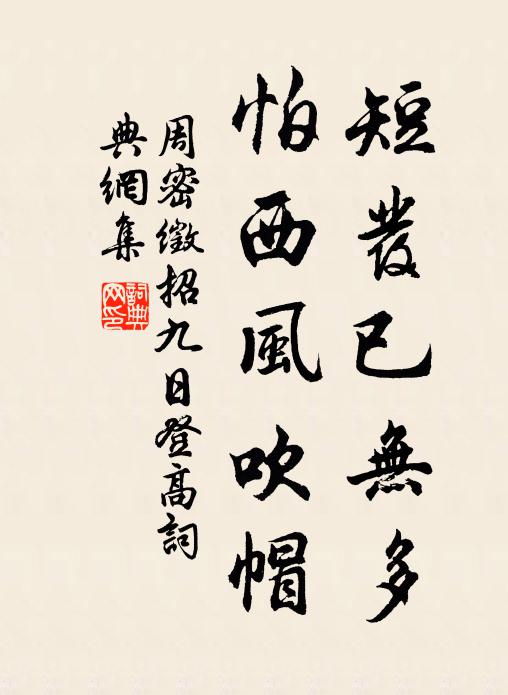 短發已無多
怕西風吹帽
周密徵招九日登高詞
典網集
詞典
网印